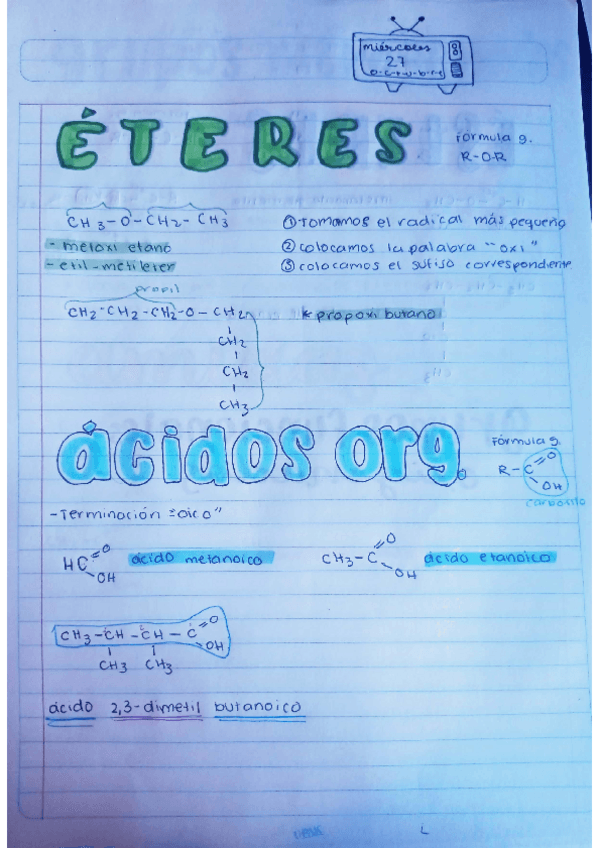 miércoles
27
o-c-t-u-b-r-e
ÉTERES
Formula g.
R-O-R
CH3-O-CH2-CH3
- metoxi etano
- etil-metileter
① Tomamos el radical más pequeño
② colocamos la palabra "oxi"
③ colocamos el sufijo correspondiente
propil
CH2-CH2-CH2-O-CH2
CH2
CH2
CH3
* propoxi butano
ácidos org.
Fórmula g.
R-C=O
OH
carboxilo
-Terminación "oico"
HC=O
OH
ácido metanoico
CH3-C=O
OH
ácido etanoico
CH3-CH-CH-C=O
OH
CH3 CH3
ácido 2,3-dimetil butanoico